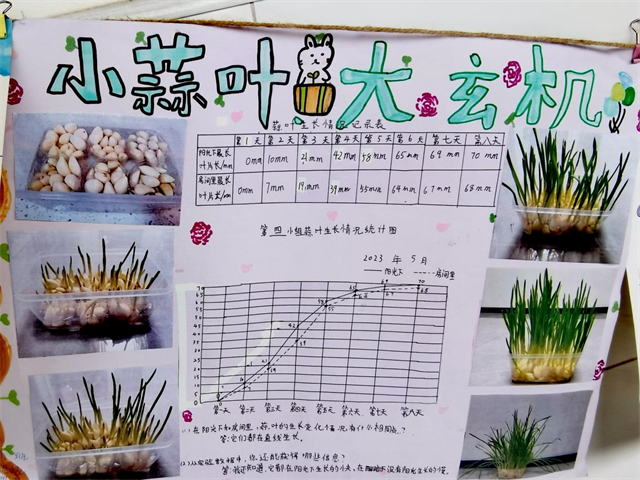 小蒜叶大玄机
蒜叶生长情况记录表
第1天 第2天 第3天 第4天 第5天 第6天 第七天 第八天
阳光下最长叶片长/mm 0mm 10mm 21mm 42mm 58mm 65mm 69mm 70mm
房间里最长叶片长/mm 0mm 7mm 19mm 39mm 55mm 64mm 67mm 68mm
第四小组蒜叶生长情况统计图
2023年5月
阳光下 房间里
70
65
第一天 第二天 第三天 第四天 第五天 第六天 第七天 第八天
(1)在阳光下和房间里,蒜叶的生长变化情况有什么相同点?
答:它们都在直线生长。
(2)从实验数据中,你还能获得哪些信息?